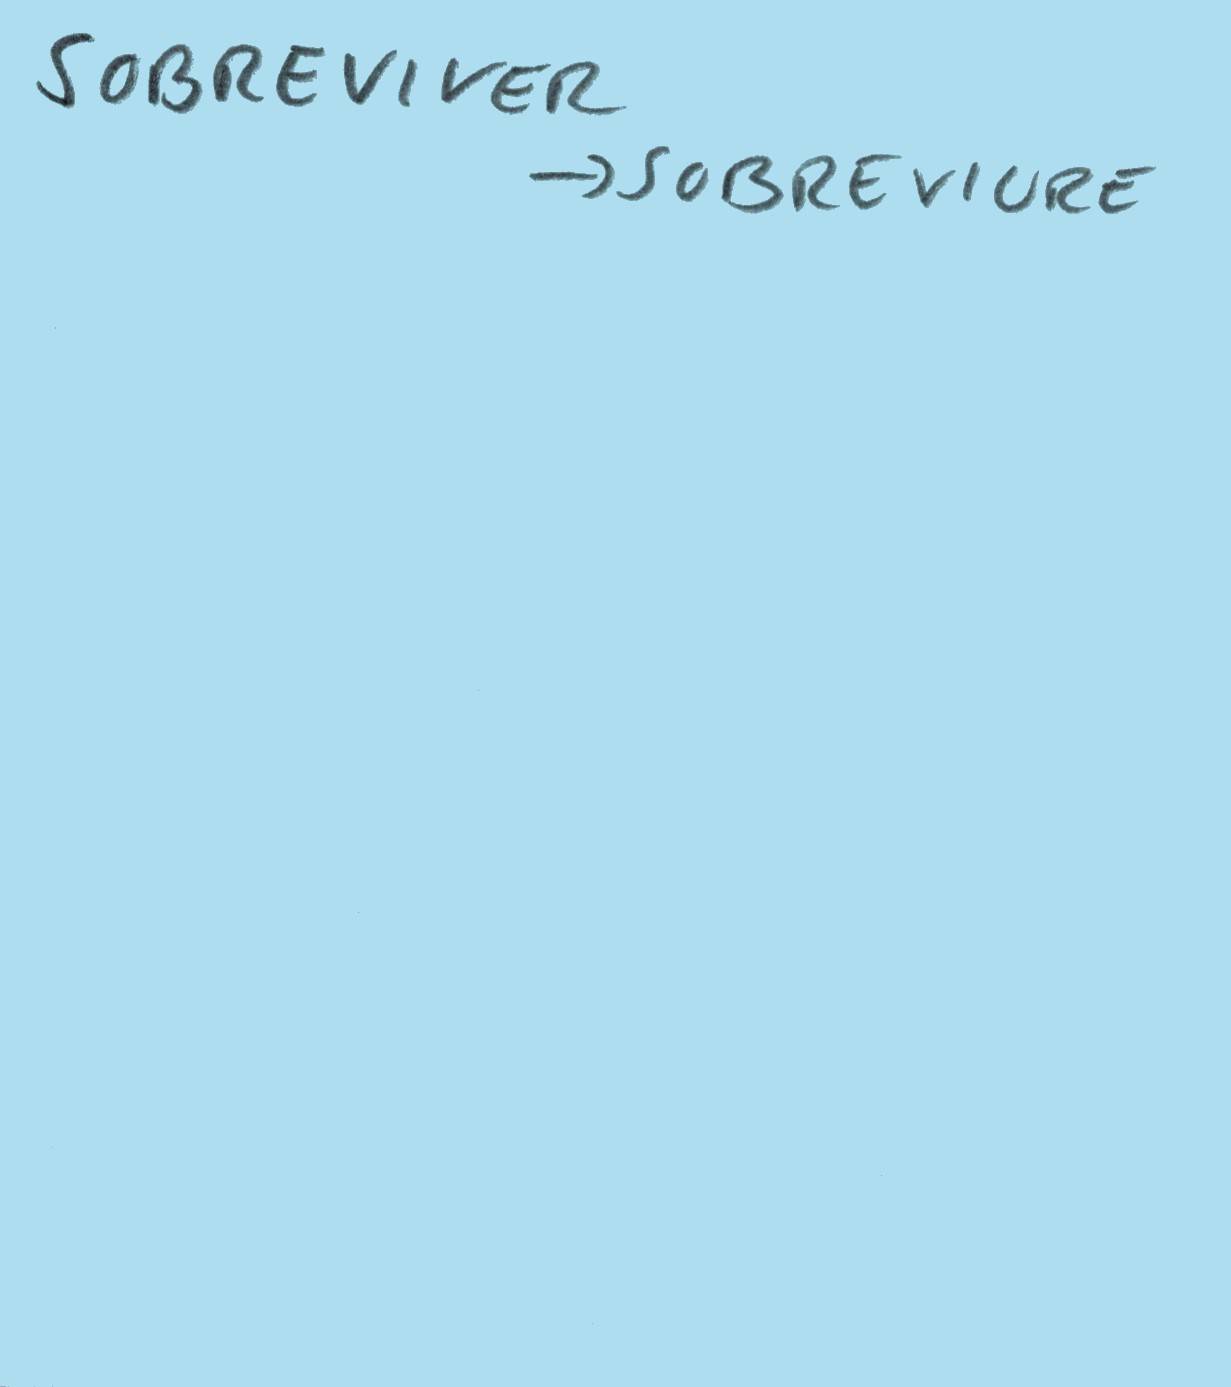 SOBREVIVER
→SOBREVIURE